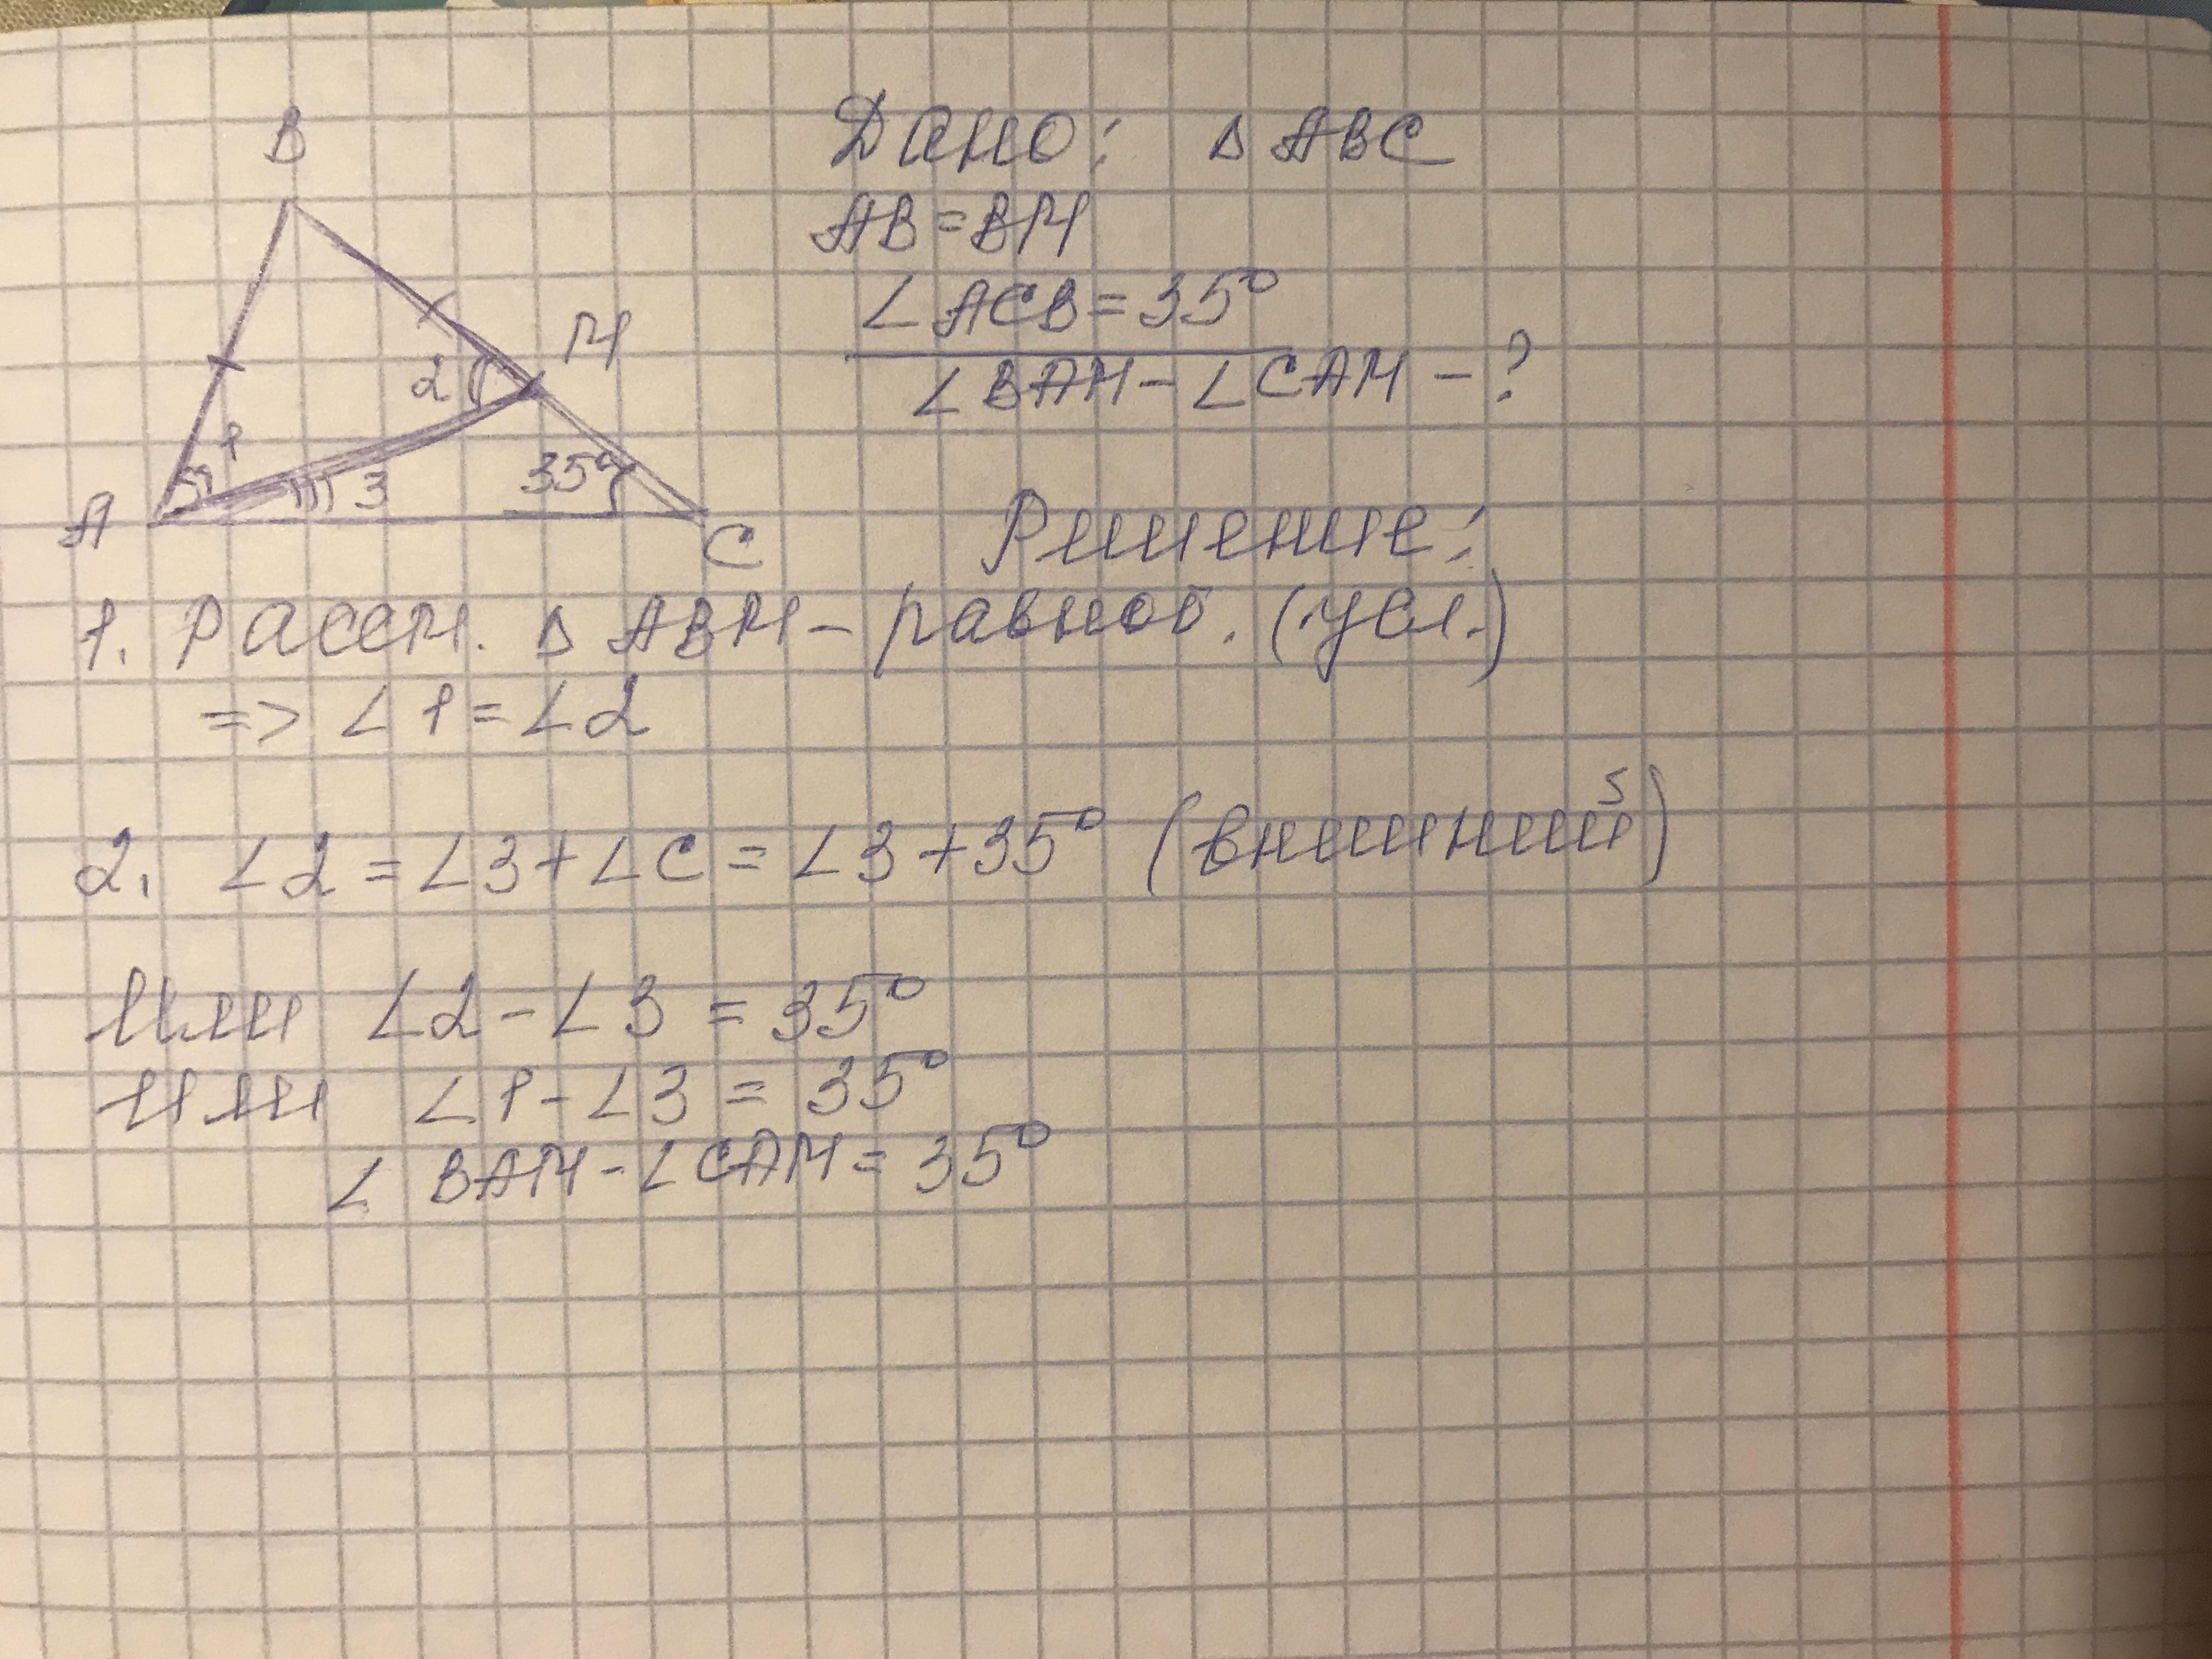 B
Дано: △ ABC
AB = BM
∠ACB = 35°
∠BAM - ∠CAM - ?
M
2
1
3
35°
A
C
Решение:
1. Рассм. △ ABM - равноб. (усл.)
=> ∠1 = ∠2
2. ∠2 = ∠3 + ∠C = ∠3 + 35° (внешний)
Или ∠2 - ∠3 = 35°
Или ∠1 - ∠3 = 35°
∠ BAM - ∠CAM = 35°